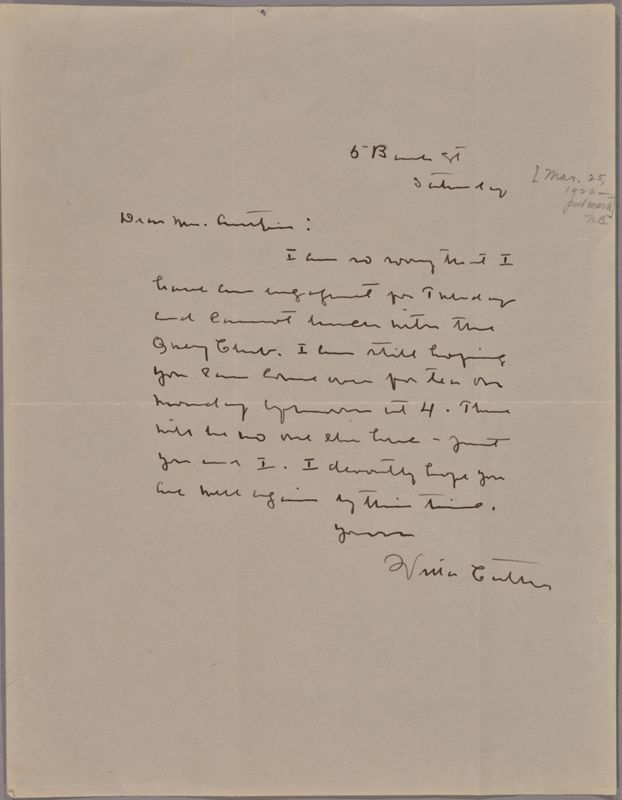 5 Bank St
Saturday
[Mar. 25,
1922—
postmark]
Dear Mrs. Austin:
I am so sorry that I
have an engagement for Tuesday
and cannot lunch with the
Query Club. I am still hoping
you can come over for tea on
Monday afternoon at 4. There
will be no one else here - just
you and I. I devoutly hope you
are well again by this time.
Yours
Willa Cather